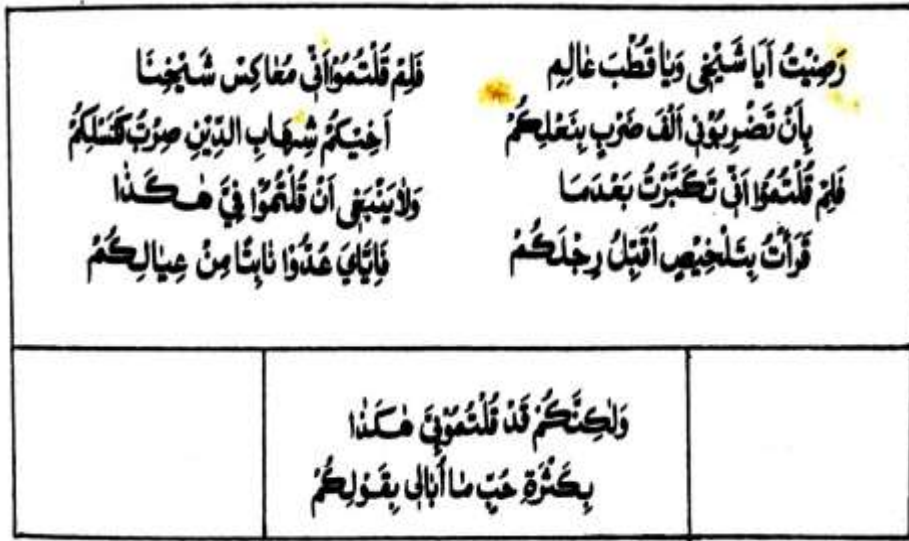 رَضِيْتُ اَيَا شَيْخِى وَيَا قُطْبَ عَالِمِ
بِاَنْ تَضْرِبُوْنِى اَلْفَ ضَرْبٍ بِنَعْلِكُمْ
فَلِمْ قُلْتُمُوْا اَنِّى تَكَبَّرْتُ بَعْدَمَا
قَرَأْتُ بِتَلْخِيْصٍ اُقَبِّلُ رِجْلَكُمْ
فَلِمْ قُلْتُمُوْا اَنِّى مُعَاكِسْ شَيْخِنَا
اَخِيْكُمْ شِهَابِ الدِّيْنِ صِرْتُ كَنَسْلِكُمْ
وَلَا يَنْبَغِى اَنْ قُلْتُمُوْا فِيَّ هٰكَذَا
فَاِيَّايَ عُدُّوْا نَابِتًا مِنْ عِيَالِكُمْ
وَلٰكِنَّكُمْ قَدْ قُلْتُمُوْ فِيَّ هٰكَذَا
بِكَثْرَةِ حُبٍّ مَا اُبَالِى بِقَوْلِكُمْ